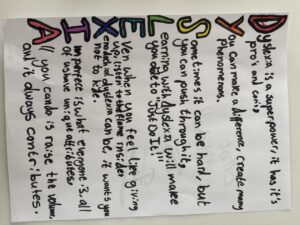 Dyslexia is a superpower, it has it's
pro's and con's,
You can make a difference, create many
phenomenons.
Sometimes it can be hard, but
you can push through it,
Learning with dyslexia will make
you able to "Just Do It!"!!
Even when you feel like giving
up, listen to the flame inside,
end dyslexia can be, it wants you
not to hide.
Imperfect is what everyone is, all
of us have unique attributes,
All you can do is raise the volume,
and it always contributes.